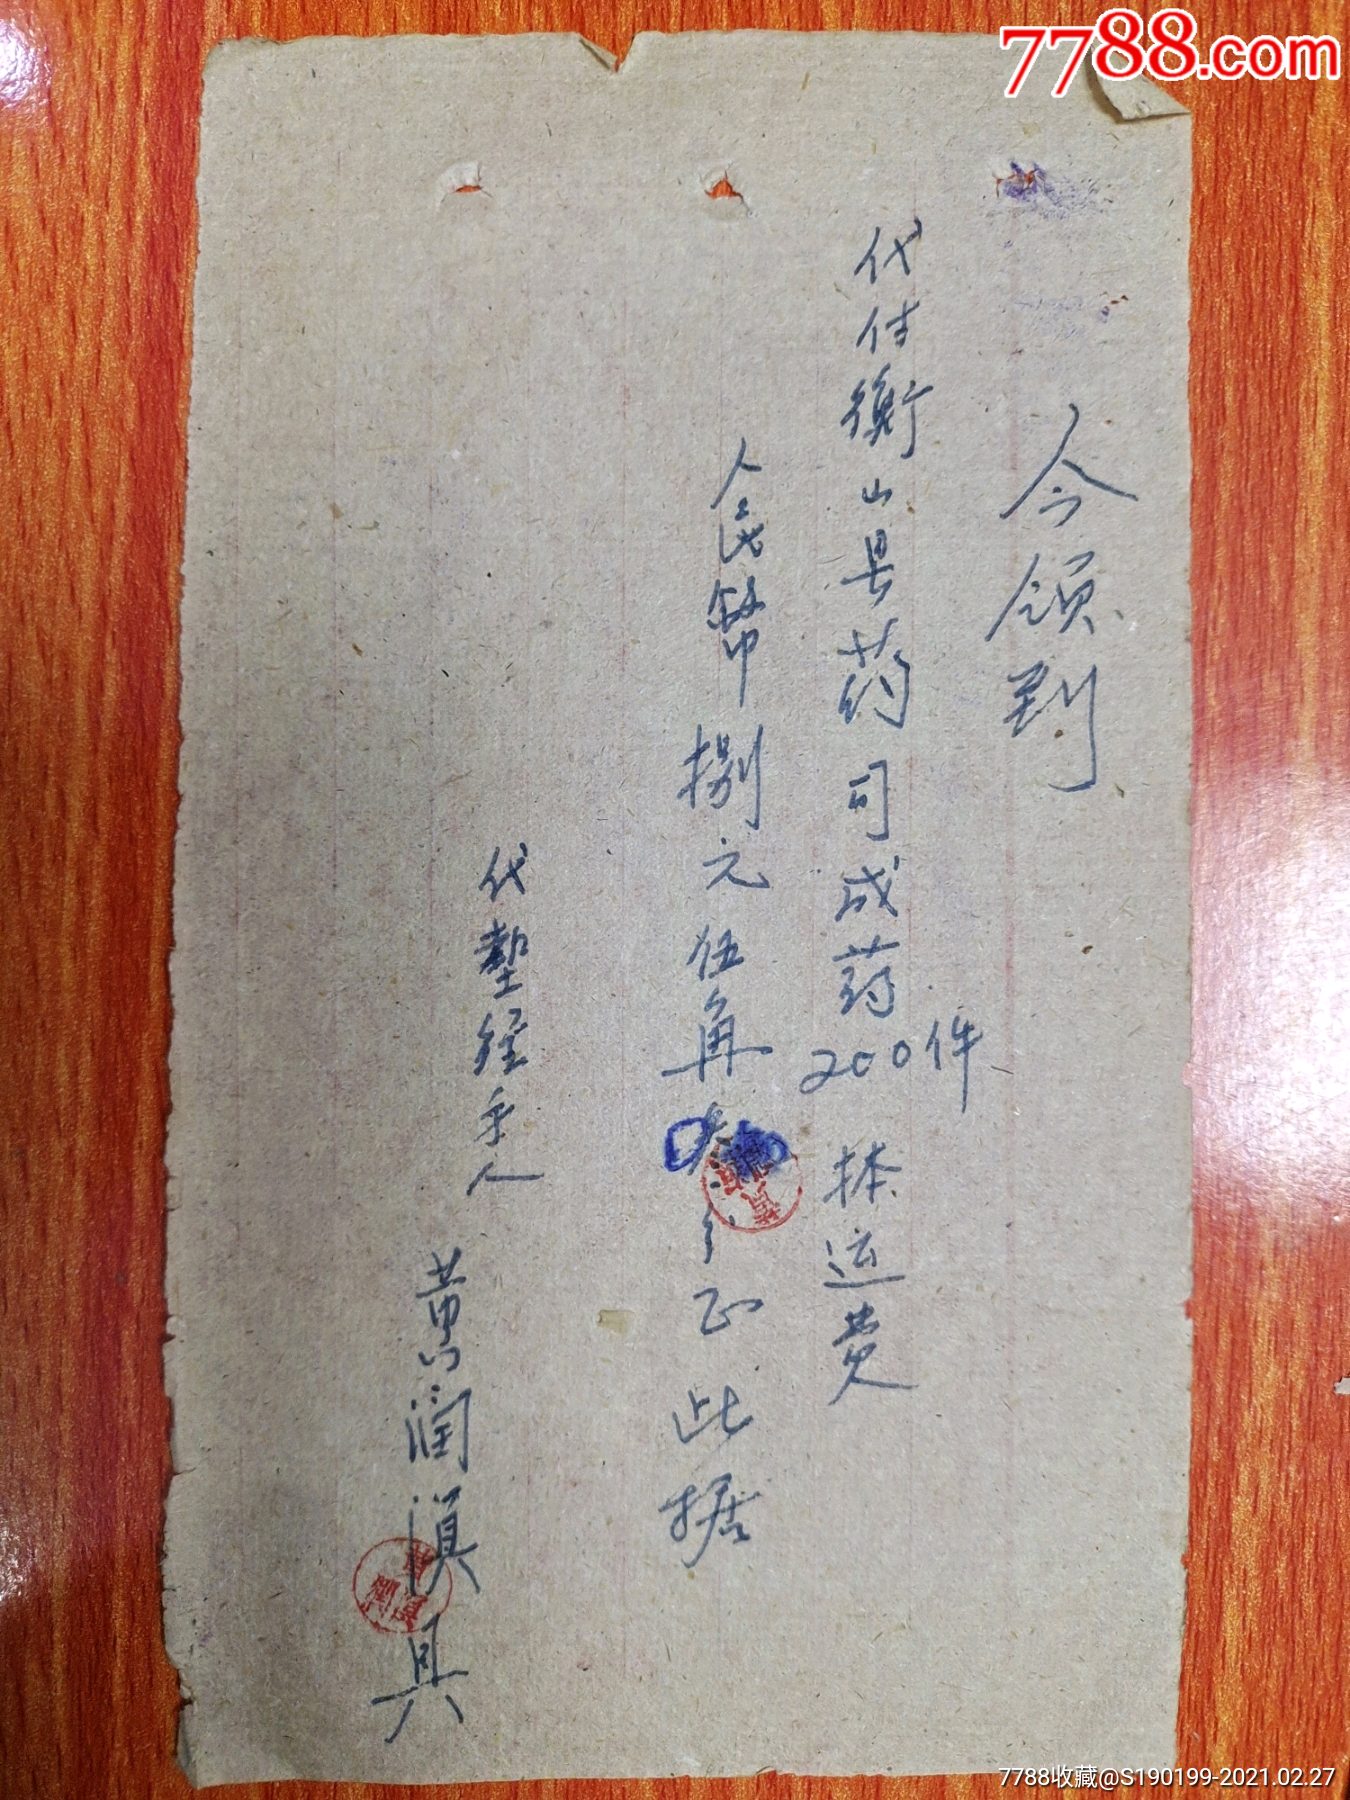 7788.com
今领到
代付衡山县药司成药200件 运费
人民幣捌元伍角 分正 此据
代墊经手人 黄润滇具
7788收藏@S190199-2021.02.27